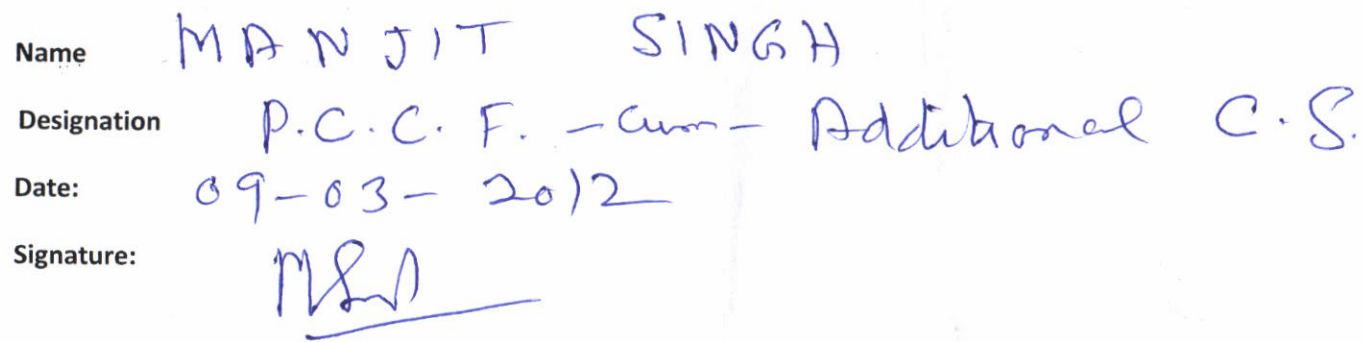 Name MANJIT SINGH
Designation P.C.C.F. -cum- Additional C.S.
Date: 09-03-2012
Signature: